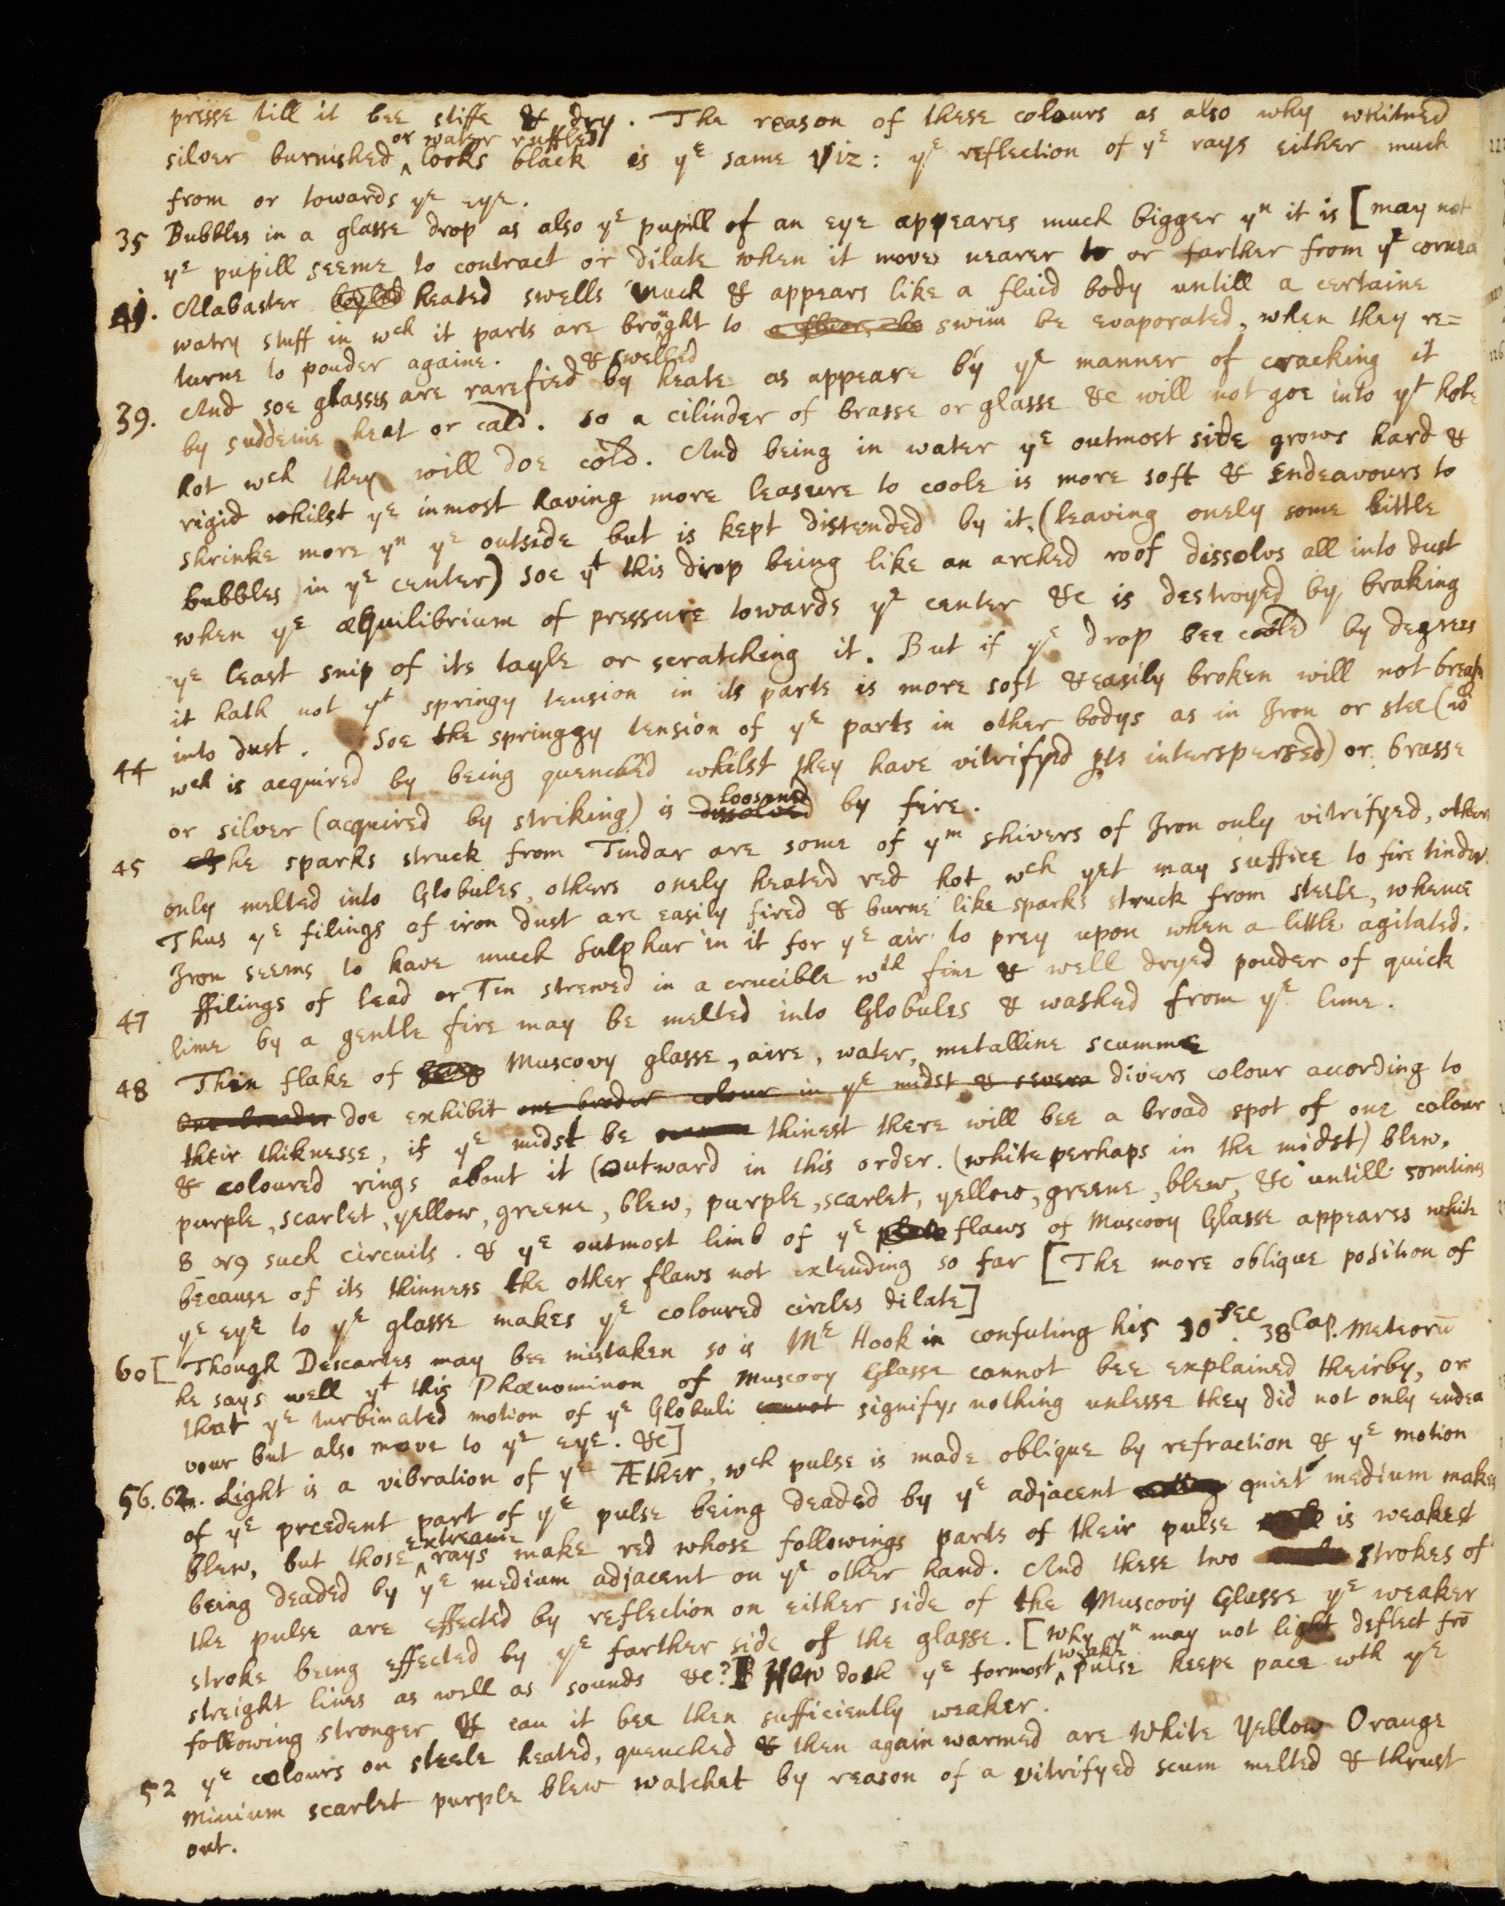 presse till it bee stiffe & dry. The reason of these colours as also why whitned
or water ruffled
silver burnished ‸ looks black is yᵉ same viz: yᵉ reflection of yᵉ rays either much
from or towards yᵉ eye.
35 Bubbles in a glasse drop as also yᵉ pupill of an eye appeares much bigger yⁿ it is [may not
yᵉ pupill seeme to contract or dilate when it moves nearer to or farther from yᵉ cornea
41. Alabaster heated swells much & appears like a fluid body untill a certaine
watry stuff in wᶜʰ it parts are brought to swim be evaporated, when they re=
turne to pouder againe.
& swelled
39. And soe glasses are rarefied by heate as appeare by yᵉ manner of cracking it
by suddeine heat or cold. so a cilinder of brasse or glasse &c will not goe into yᵗ hole
hot wᶜʰ they will doe cold. And being in water yᵉ outmost side grows hard &
rigid whilst yᵉ inmost having more leasure to coole is more soft & Endeavours to
shrinke more yⁿ yᵉ outside but is kept distended by it, (leaving onely some little
bubbles in yᵉ center) soe yᵗ this drop being like an arched roof dissolvs all into dust
when yᵉ æquilibrium of pressure towards yᵉ center &c is destroyed by braking
yᵉ least snip of its tayle or scratching it. But if yᵉ drop bee coole by degrees
it hath not yᵗ springy tension in its parts is more soft & easily broken will not break
into dust. Soe the springgy tension of yᵉ parts in other bodys as in Iron or stee(
44 wᶜʰ is acquired by being quenched whilst they have vitrifyed pts interspersed) or brasse
loosened
or silver (acquired by striking) is dissolved by fire.
45 The sparks struck from Tindar are some of yᵐ shivers of Iron only vitrifyed, others
only melted into Globules, others onely heated red hot wᶜʰ yet may suffice to fire tinder.
Thus yᵉ filings of iron dust are easily fired & burne like sparks struck from steele, whence
Iron seems to have much Sulphur in it for yᵉ air to prey upon when a little agitated.
47 ffilings of lead or Tin strewed in a crucible wᵗʰ fine & well dryed pouder of quick
lime by a gentle fire may be melted into Globules & washed from yᵉ lime.
48 Thin flake of Muscovy glasse, aire, water, metalline scumme
One broader doe exhibit one broder colour in yᵉ midst & severa divers colour according to
their thiknesse, if yᵉ midst be thinest there will bee a broad spot of one colour
& coloured rings about it (outward in this order. (white perhaps in the midst) blew,
purple, scarlet, yellow, greene, blew, purple, scarlet, yellow, greene, blew, &c untill somtimes
8 or 9 such circuits. & yᵉ outmost limb of yᵉ plate flaws of Muscovy Glasse appeares white
because of its thinness the other flaws not extending so far [The more oblique position of
yᵉ eye to yᵉ glasse makes yᵉ coloured circles dilate]
60 [Though Descartes may bee mistaken so is Mʳ Hook in confuting his 10 sec. 38 Cap. Meteorū
he says well yᵗ this Phænominon of Muscovy Glasse cannot bee explained theirby, or
that yᵉ turbinated motion of yᵉ Globuli cannot signifys nothing unlesse they did not only endea
vour but also move to yᵉ eye. &c]
56.62. Light is a vibration of yᵉ Æther, wᶜʰ pulse is made oblique by refraction & yᵉ motion
of yᵉ prcedent part of yᵉ pulse being deaded by yᵉ adjacent quiet medium makes
extreame
blew, but those ‸ rays make red whose followings parts of their pulse is weakest
being deaded by yᵉ medium adjacent on yᵉ other hand. And these two strokes of
the pulse are effected by reflection on either side of the Muscovy Glasse yᵉ weaker
stroke being effected by yᵉ farther side of the glasse. [Why yⁿ may not light deflect frō
weake
streight lines as well as sounds &c? How doth yᵉ formost ‸ pulse keepe pace wth yᵉ
following stronger & can it bee then sufficiently weaker.
52 yᵉ colours on steele heated, quenched & then again warmed are White Yellow Orange
Minium scarlet purple blew watchet by reason of a vitrifyed scum melted & thrust
out.